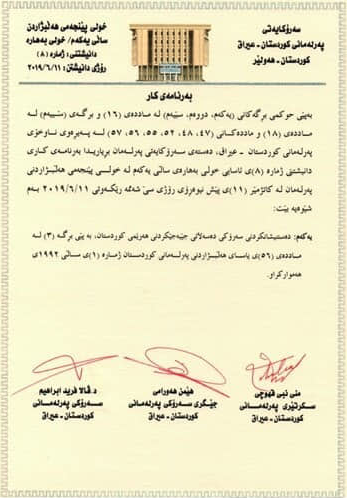 سەرۆکایەتی
پەرلەمانی کوردستان - عیراق
کوردستان - هەولێر
خولی پێنجەمی هەڵبژاردن
ساڵی یەکەم/ خولی بەهارە
دانیشتنی: ژمارە (٨)
ڕۆژی دانیشتن: ٢٠١٩/٦/١١
بەرنامەی کار
بەپێی حوکمی بڕگەکانی (یەکەم، دووەم، سێیەم) لە ماددەی (١٦) و بڕگەی (سێیەم) لە
ماددەی (١٨) و ماددەکانی (٤٧، ٤٨، ٥٢، ٥٥، ٥٦، ٥٧) لە پەیڕەوی ناوخۆی
پەرلەمانی کوردستان - عیراق، دەستەی سەرۆکایەتی پەرلەمان بڕیاریدا بەرنامەی کاری
دانیشتنی ژمارە (٨)ی ئاسایی خولی بەهارەی ساڵی یەکەم لە خولی پێنجەمی هەڵبژاردنی
پەرلەمان لە کاتژمێر (١١)ی پێش نیوەڕۆی ڕۆژی سێ شەممە ڕێکەوتی ٢٠١٩/٦/١١ بەم
شێوەیە بێت:
یەکەم: دەستنیشانکردنی سەرۆکی دەسەڵاتی جێبەجێکردنی هەرێمی کوردستان، بە پێی بڕگە (٣) لە
ماددەی (٥٦)ی یاسای هەڵبژاردنی پەرلەمانی کوردستان ژمارە (١)ی ساڵی ١٩٩٢ی
هەموارکراو.
منی نبی قهوچی
سکرتێری پەرلەمانی
کوردستان - عیراق
هێمن هەورامی
جێگری سەرۆکی پەرلەمانی
کوردستان - عیراق
د. ڤالا فرید ابراهیم
سەرۆکی پەرلەمانی
کوردستان - عیراق